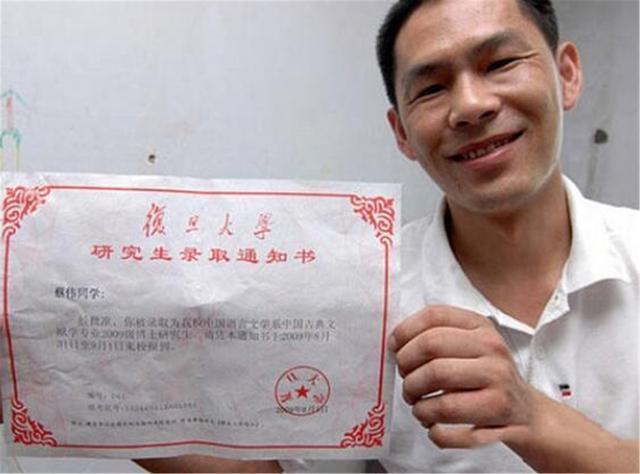 復旦大學
研究生录取通知书
蔡伟同学：
经批准，你被录取为我校中国语言文学系中国古典文
献学专业2009级博士研究生，请凭本通知书于2009年8月
31日至9月1日来校报到。
编号：
报考证号：
复旦大学